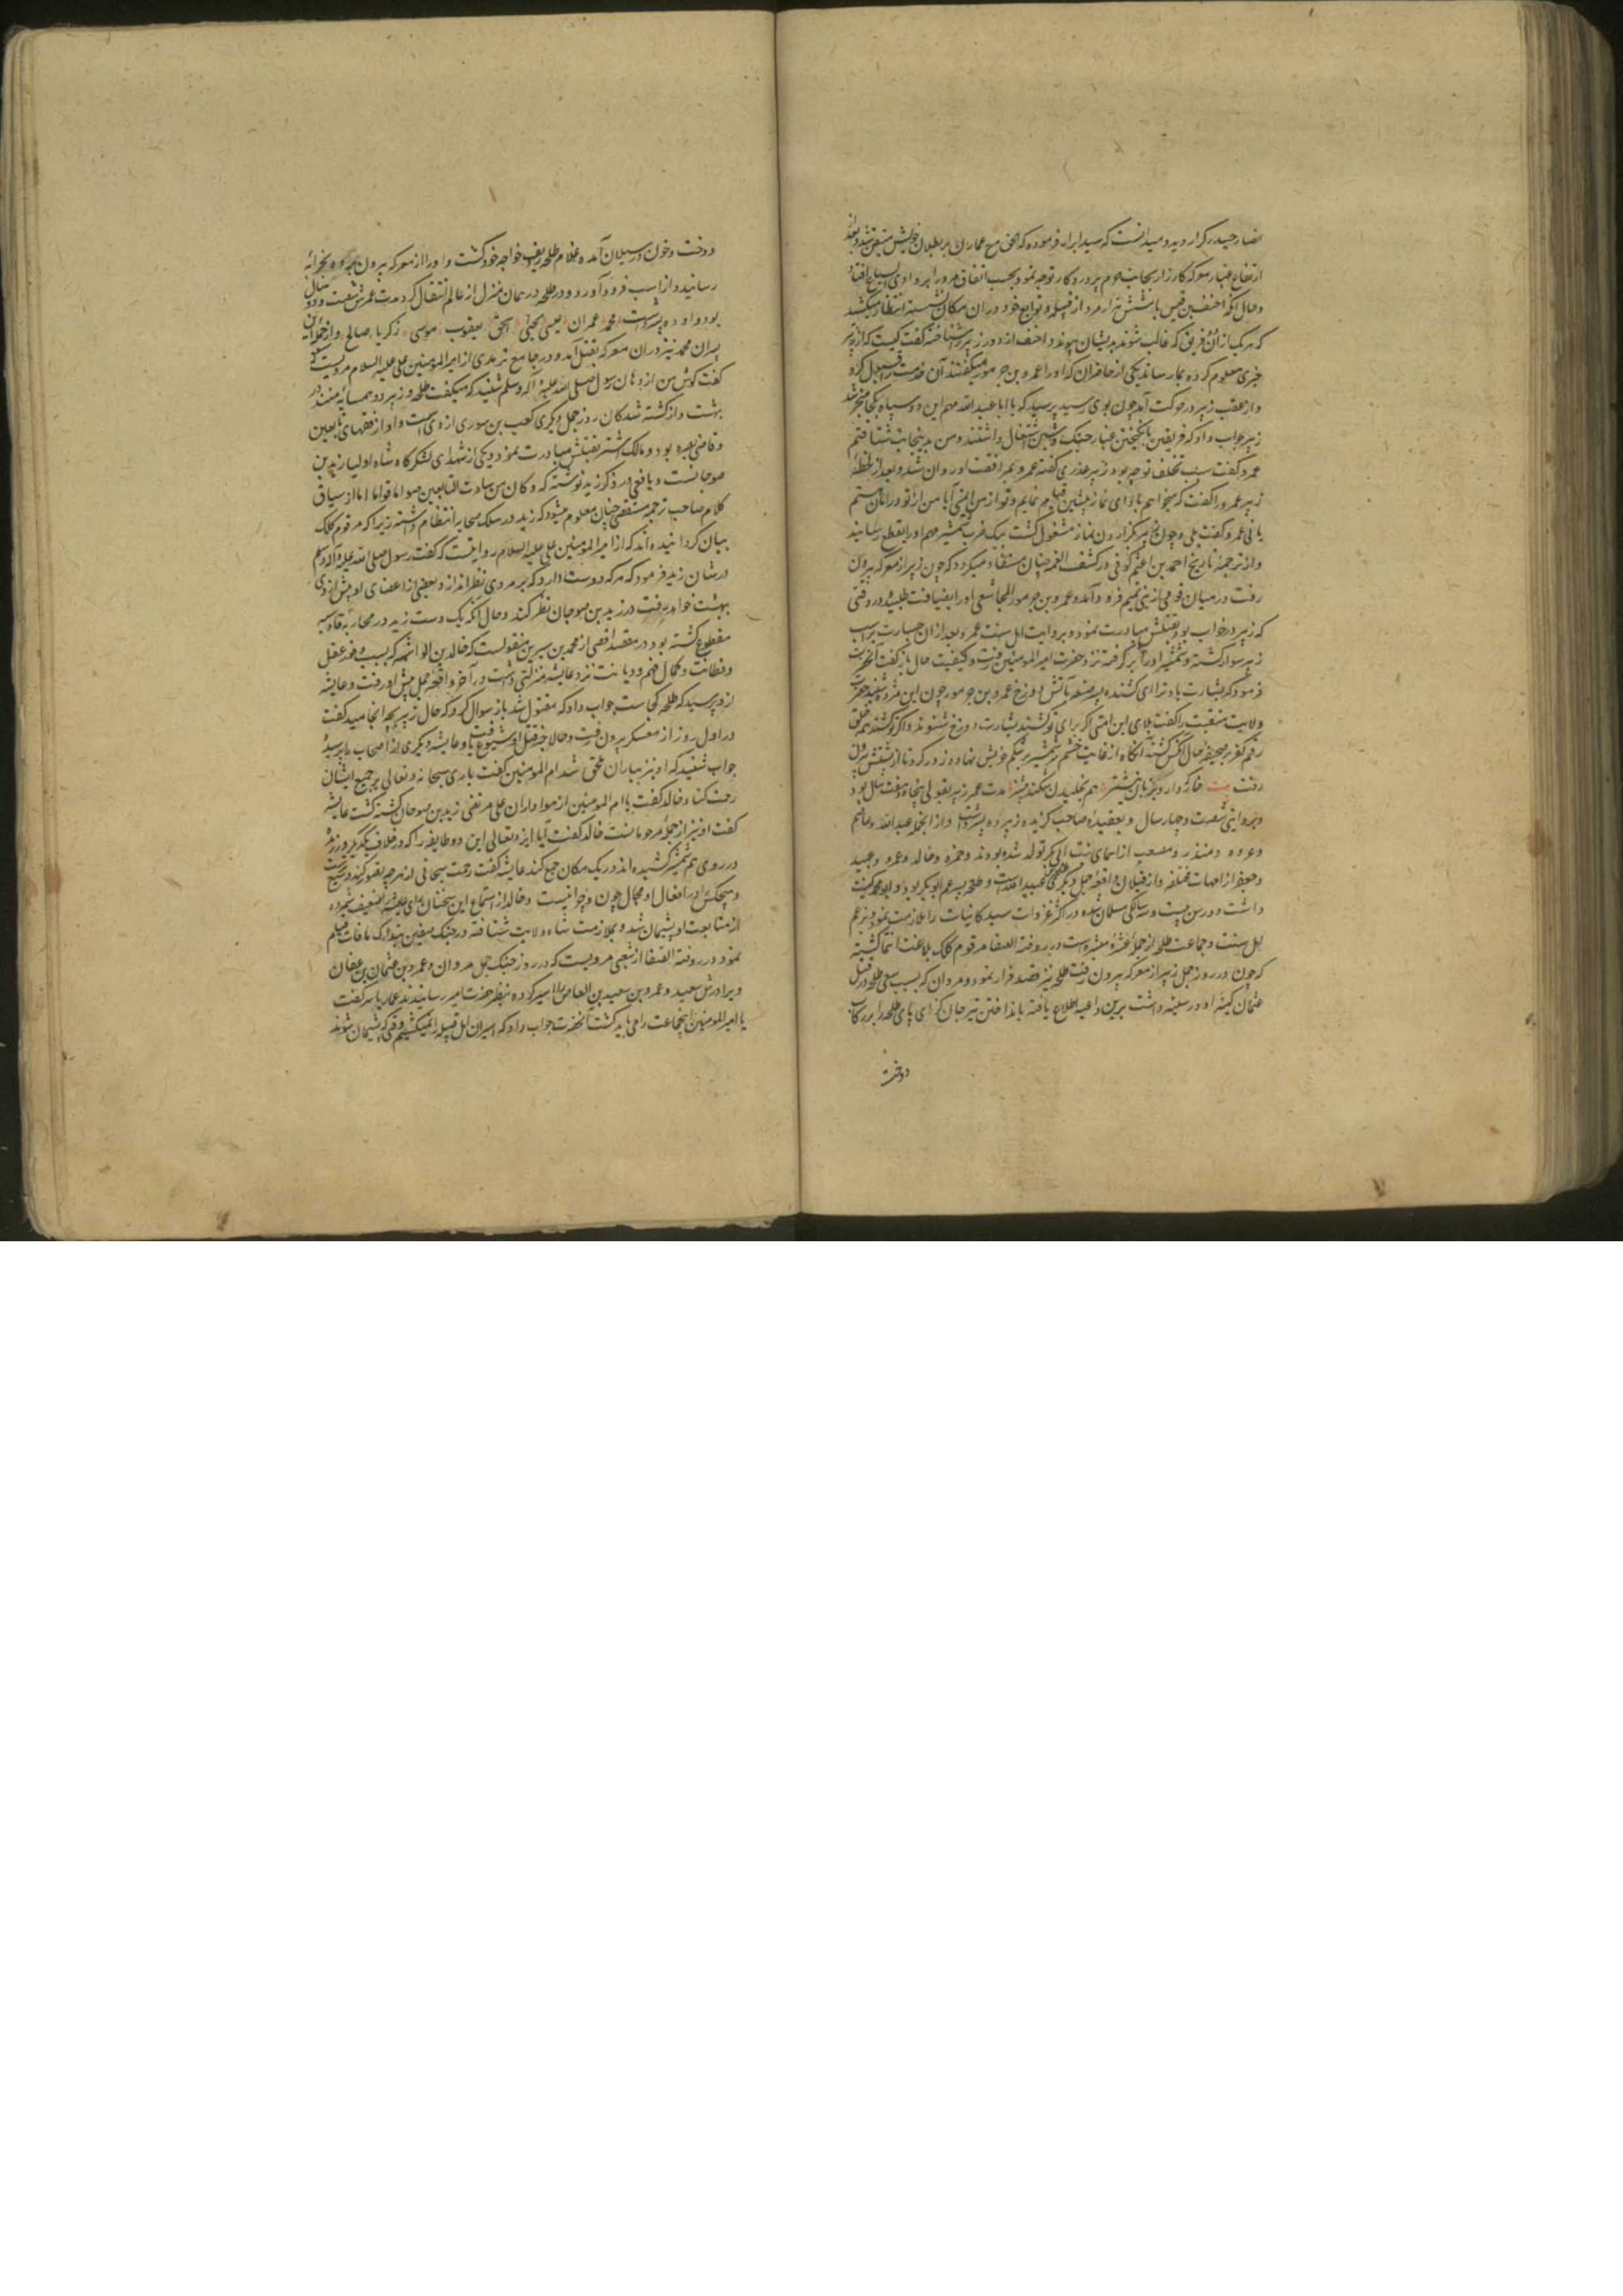 انصار حیدر کرار دید و میدانست که سید ابرار فرموده که الحق مع عمار بن بر بطلان خویش متیقن شد و بعد از
ارتفاع غبار معرکه کارزار بجانب حرم پروردکار توجه نمود و بحسب اتفاق مرور او بر وادی السباع افتاد
و حال آنکه احنف بن قیس با شش هزار مرد از قبیله و توابع خود در ان مکان نشسته انتظار میکشید
که هر یک از ان فریق که غالب شوند بدیشان پیوندد احنف از دور زبیر را شناخته گفت کیست که از زبیر
خبری معلوم کرده بما رساند یکی از حاضران که او را عمرو بن جرموز میگفتند آن خدمت را قبول کرد
و از عقب زبیر در حرکت آمد چون بوی رسید پرسید که یا ابا عبد الله مهم این دو سپاه بکجا منجر شد
زبیر جواب داد که فریقین بانگیختن غبار جنک و شین اشتغال داشتند و من بدینجانب شتافتم
عمرو گفت سبب تخلف تو چه بود زبیر عذری گفته عمرو بمرافقت او روان شد و بعد از لحظه
زبیر عمرو را گفت که میخواهم بادای نماز پیشین قیام نمایم و تو از من ایمنی آیا من از تو در امان هستم
یا نی عمرو گفت بلی و چون زبیر بگزاردن نماز مشغول گشت بیک ضرب شمشیر مهم او را بقطع رسانید
و از ترجمه تاریخ احمد بن اعثم کوفی و کشف الغمه چنان مستفاد میگردد که چون زبیر از معرکه بیرون
رفت در میان قومی از بنی تمیم فرود آمد و عمرو بن جرموز المجاشعی او را بضیافت طلبیده در وقتی
که زبیر در خواب بود بقتلش مبادرت نمود و بروایت اهل سنت عمرو بعد از ان جسارت بر اسب
زبیر سوار گشته و شمشیر او را برگرفته نزد حضرت امیر المومنین رفت و کیفیت حال باز گفت آنحضرت
فرمود که بشارت باد ترا ای کشنده پسر صفیه بآتش دوزخ عمرو بن جرموز چون این مژده شنید حضرت
ولایت منقبت را گفت بلای این امتی اگر برای تو کشیند بشارت دوزخ شنوند و اگر تو کشند بر خلق
رقم کفر بر صحیفه حال آنکس کشند آنگاه از غایت خشم سر شمشیر بر شکم خویش نهاده زور کرد تا از پشتش بیرون
رفت بیت مدت عمر زبیر بقولی پنجاه و هفت سال بود
و بروایتی شصت و چهار سال و بعقیده صاحب گزیده زبیر ده پسر داشت و از انجمله عبد الله و عاصم
و عروه و منذر و مصعب از اسمای بنت ابی بکر تولد شده بودند و حمزه و خالد و عمرو و عبید
و جعفر از امهات مختلفه و از قتیلان واقعه جمل دیگری طلحه بن عبید الله است و طلحه پسر عم ابو بکر بود و ابو محمد کنیت
داشت و در سن بیست و سالگی مسلمان شده در اکثر غزوات سید کاینات را ملازمت نمود و بزعم
اهل سنت و جماعت طلحه از جمله عشره مبشره است در روضة الصفا مرقوم کلک بلاغت انتما گشته
که چون در روز جمل زبیر از معرکه بیرون رفت طلحه نیز قصد فرار نمود و مروان که بسبب سعی طلحه در قتل
عثمان کینه او در سینه داشت برین داعیه اطلاع یافته بانداختن تیر جان گزای پای طلحه را بر رکاب
دوخت
دوخت و خون در سیلان آمده غلام طلحه ردیف خواجه خود گشت و او را از معرکه بیرون برده بخرابه
رسانیده از اسب فرود آورد و در طلحه در همان منزل از عالم انتقال کرد مدت عمرش شصت و دو سال
بود و او ده پسر داشت محمد عمران عیسی یحیی اسحق یعقوب موسی زکریا صالح و از جمله این
پسران محمد نیز در ان معرکه بقتل آمد و در جامع ترمذی از امیر المومنین علی علیه السلام مرویست که
گفت گوش من از دهان رسول صلی الله علیه و آله و سلم شنید که میگفت طلحه و زبیر دو همسایه منند در
بهشت و از کشته شدگان روز جمل دیگری کعب بن سور ازدی است و او از فقهای تابعین
و قاضی بصره بود و مالک اشتر بقتلش مبادرت نمود و یکی از شهدای لشکرگاه شاه اولیا زید بن
صوحانست و یافعی در ذکر زید نوشته که و کان من سادات التابعین صواما قواما اما از سیاق
کلام صاحب ترجمه مستقصی چنان معلوم میشود که زید در سلک صحابه انتظام داشته زیرا که مرقوم کلک
بیان گردانیده اند که از امیر المومنین علی علیه السلام روایتست که گفت رسول صلی الله علیه و آله و سلم
در شان زید فرمود که هر که دوست دارد که بر مردی نظر اندازد و بعضی از اعضای او پیش از وی
بهشت خواهد رفت در زید بن صوحان نظر کند و حال آنکه یک دست زید در محاربه قادسیه
مقطوع گشته بود در مقصد اقصی از محمد بن سیرین منقولست که خالد بن الواشمه که بسبب وفور عقل
و فطانت و کمال فهم و دیانت نزد عایشه منزلتی داشت در آخر واقعه جمل پیش او رفت و عایشه
ازو پرسید که طلحه کجاست جواب داد که مقتول شد باز سوال کرد که حال زبیر بچه انجامید گفت
در اول روز از معسکر بیرون رفت و حالا خبر قتل او شیوع یافت و عایشه دیگری را از اصحاب ما پرسید
جواب شنید که او نیز بیاران ملحق شد ام المومنین گفت باری سبحانه و تعالی بر جمیع ایشان
رحمت کناد خالد گفت یا ام المومنین از هواداران علی مرتضی زید بن صوحان کشته گشت عایشه
گفت او نیز از جمله مرحومانست خالد گفت آیا ایزد تعالی این دو طایفه را که در خلاف یکدیگر ورزیده
در روی هم شمشیر کشیده اند در یک مکان جمع کند عایشه گفت رحمت سبحانی از هر چه تصور کنند وسیعتر است
و هیچکس را در افعال او مجال چون و چرا نیست و خالد از استماع این سخنان رای عایشه را ضعیف شمرده
از متابعت او پشیمان شد و بملازمت شاه ولایت شتافته در جنک صفین بتدارک مافات قیام
نمود در روضة الصفا از شعبی مرویست که در روز جنک جمل مروان و عمرو بن عثمان بن عفان
و برادرش سعید و عمرو بن سعید بن العاص را اسیر کرده بنظر حضرت امیر رسانیدند عمار یاسر گفت
یا امیر المومنین اینجماعت را می باید کشت آنحضرت جواب داد که اسیران اهل قبیله را نمیکشم وقتی که پشیمان شوند